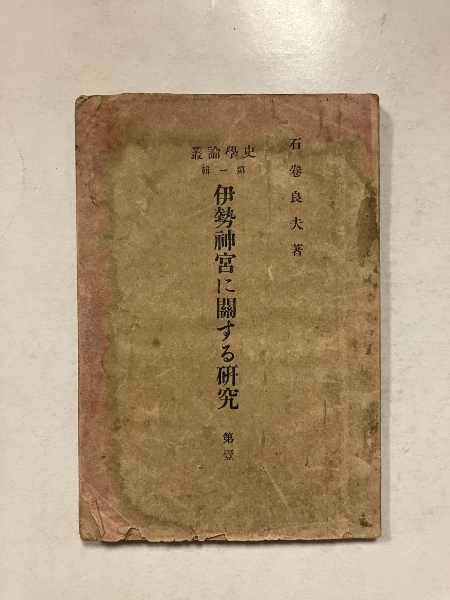 石卷良夫著
史學論叢
第一輯
伊勢神宮に關する硏究
第壹